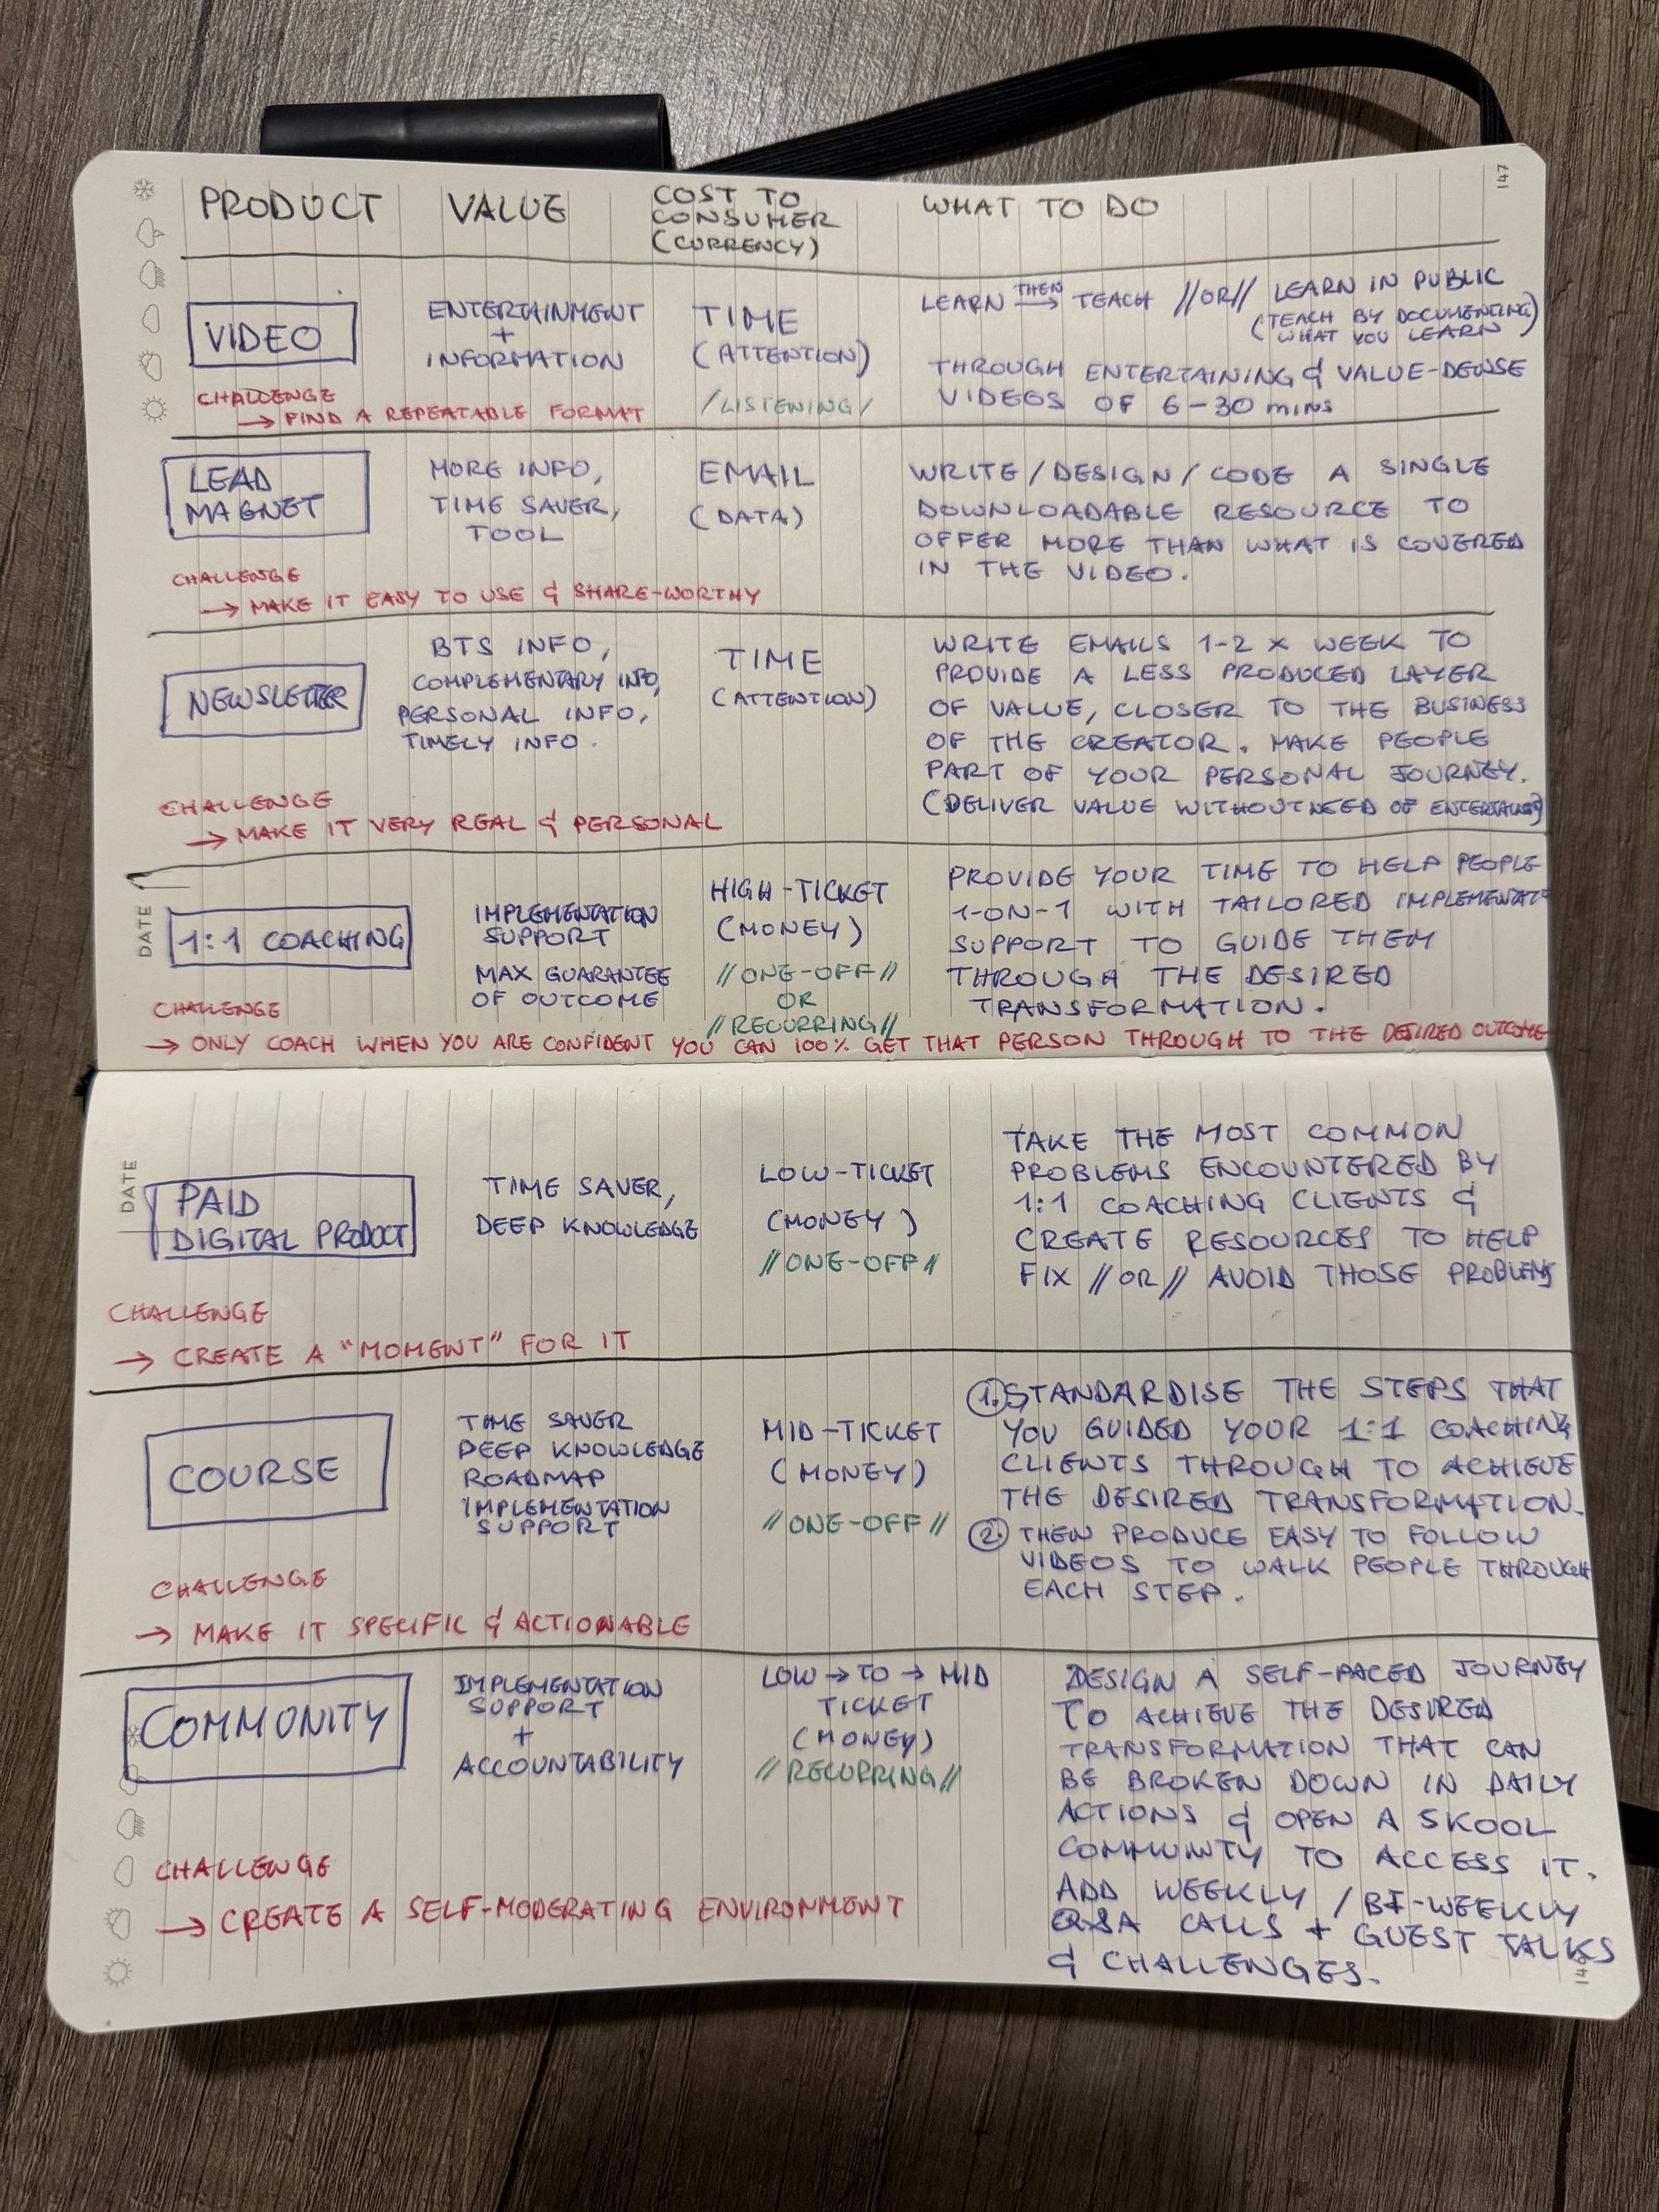 147
PRODUCT VALUE COST TO CONSUMER (CURRENCY) WHAT TO DO
VIDEO
ENTERTAINMENT
+
INFORMATION
TIME
(ATTENTION)
/LISTENING/
LEARN THEN → TEACH //OR// LEARN IN PUBLIC
(TEACH BY DOCUMENTING
WHAT YOU LEARN)
THROUGH ENTERTAINING & VALUE-DENSE
VIDEOS OF 6-30 MINS
CHALLENGE
→ FIND A REPEATABLE FORMAT
LEAD
MAGNET
MORE INFO,
TIME SAVER,
TOOL
EMAIL
(DATA)
WRITE/DESIGN/CODE A SINGLE
DOWNLOADABLE RESOURCE TO
OFFER MORE THAN WHAT IS COVERED
IN THE VIDEO.
CHALLENGE
→ MAKE IT EASY TO USE & SHARE-WORTHY
NEWSLETTER
BTS INFO,
COMPLEMENTARY INFO,
PERSONAL INFO,
TIMELY INFO.
TIME
(ATTENTION)
WRITE EMAILS 1-2 x WEEK TO
PROVIDE A LESS PRODUCED LAYER
OF VALUE, CLOSER TO THE BUSINESS
OF THE CREATOR. MAKE PEOPLE
PART OF YOUR PERSONAL JOURNEY.
(DELIVER VALUE WITHOUT NEED OF
CHALLENGE
→ MAKE IT VERY REAL & PERSONAL
DATE
1:1 COACHING
IMPLEMENTATION
SUPPORT
MAX GUARANTEE
OF OUTCOME
HIGH-TICKET
(MONEY)
//ONE-OFF//
OR
//RECURRING//
PROVIDE YOUR TIME TO HELP PEOPLE
1-ON-1 WITH TAILORED
SUPPORT TO GUIDE THEM
THROUGH THE DESIRED
TRANSFORMATION.
CHALLENGE
→ ONLY COACH WHEN YOU ARE CONFIDENT YOU CAN 100% GET THAT PERSON THROUGH TO THE DESIRED OUTCOME
DATE
PAID
DIGITAL PRODUCT
TIME SAVER,
DEEP KNOWLEDGE
LOW-TICKET
(MONEY)
//ONE-OFF//
TAKE THE MOST COMMON
PROBLEMS ENCOUNTERED BY
1:1 COACHING CLIENTS &
CREATE RESOURCES TO HELP
FIX //OR// AVOID THOSE PROBLEMS
CHALLENGE
→ CREATE A "MOMENT" FOR IT
COURSE
TIME SAVER
DEEP KNOWLEDGE
ROADMAP
IMPLEMENTATION
SUPPORT
MID-TICKET
(MONEY)
//ONE-OFF//
1. STANDARDISE THE STEPS THAT
YOU GUIDED YOUR 1:1 COACHING
CLIENTS THROUGH TO ACHIEVE
THE DESIRED TRANSFORMATION.
2. THEN PRODUCE EASY TO FOLLOW
VIDEOS TO WALK PEOPLE THROUGH
EACH STEP.
CHALLENGE
→ MAKE IT SPECIFIC & ACTIONABLE
COMMUNITY
IMPLEMENTATION
SUPPORT
+
ACCOUNTABILITY
LOW → TO → MID
TICKET
(MONEY)
//RECURRING//
DESIGN A SELF-PACED JOURNEY
TO ACHIEVE THE DESIRED
TRANSFORMATION THAT CAN
BE BROKEN DOWN IN DAILY
ACTIONS & OPEN A SKOOL
COMMUNITY TO ACCESS IT.
ADD WEEKLY/BI-WEEKLY
Q&A CALLS + GUEST TALKS
& CHALLENGES.
CHALLENGE
→ CREATE A SELF-MODERATING ENVIRONMENT